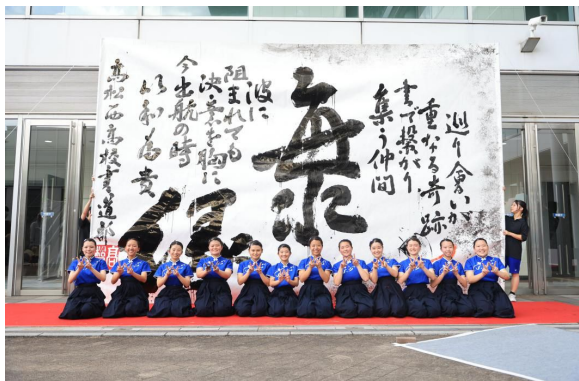 巡り会いが
重なる奇跡
書で繋がり
集う仲間
波に
阻まれても
決意を胸に
今出航の時
以和為貴
高松西高校書道部